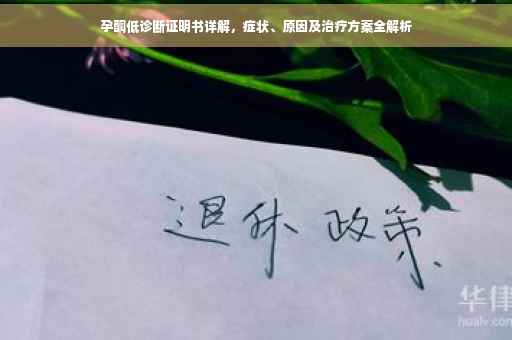 孕酮低诊断证明书详解，症状、原因及治疗方案全解析
退休 政策
华律
hualv.com